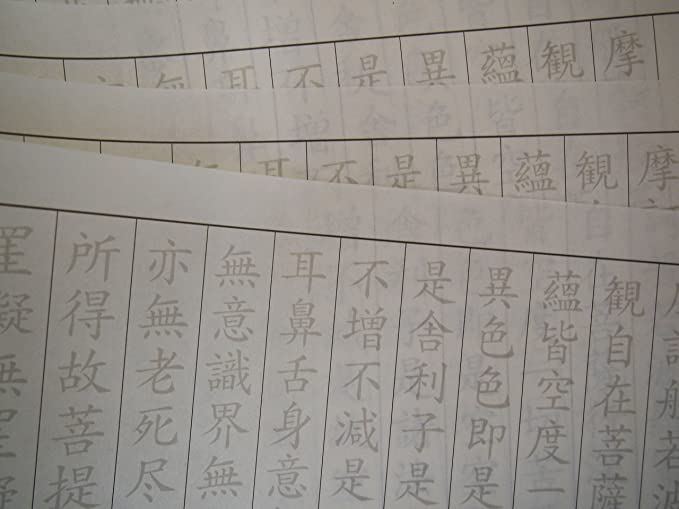 摩
観
蘊
異
是
不
耳
無
摩
観
蘊
異
是
不
耳
般若波
観自在菩薩
蘊皆空度一
異色色即是
是舎利子是
不増不減是
耳鼻舌身意
無意識界無
亦無老死尽
所得故菩提
罣礙無罣礙